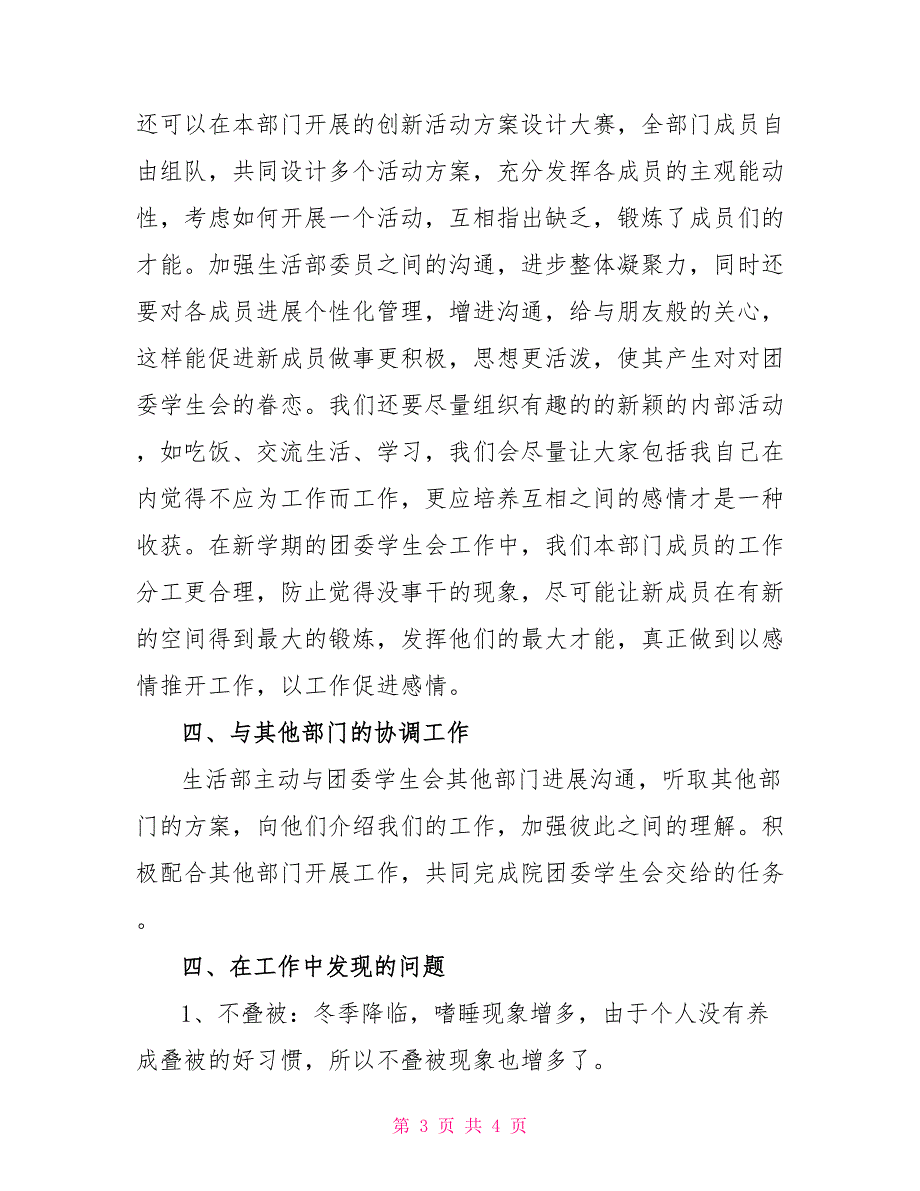 还可以在本部门开展的创新活动方案设计大赛，全部门成员自
由组队，共同设计多个活动方案，充分发挥各成员的主观能动
性，考虑如何开展一个活动，互相指出缺乏，锻炼了成员们的
才能。加强生活部委员之间的沟通，进步整体凝聚力，同时还
要对各成员进展个性化管理，增进沟通，给与朋友般的关心，
这样能促进新成员做事更积极，思想更活泼，使其产生对对团
委学生会的眷恋。我们还要尽量组织有趣的的新颖的内部活动
，如吃饭、交流生活、学习，我们会尽量让大家包括我自己在
内觉得不应为工作而工作，更应培养互相之间的感情才是一种
收获。在新学期的团委学生会工作中，我们本部门成员的工作
分工更合理，防止觉得没事干的现象，尽可能让新成员在有新
的空间得到最大的锻炼，发挥他们的最大才能，真正做到以感
情推开工作，以工作促进感情。
四、与其他部门的协调工作
生活部主动与团委学生会其他部门进展沟通，听取其他部
门的方案，向他们介绍我们的工作，加强彼此之间的理解。积
极配合其他部门开展工作，共同完成院团委学生会交给的任务
。
四、在工作中发现的问题
1、不叠被：冬季降临，嗜睡现象增多，由于个人没有养
成叠被的好习惯，所以不叠被现象也增多了。
第 3 页 共 4 页